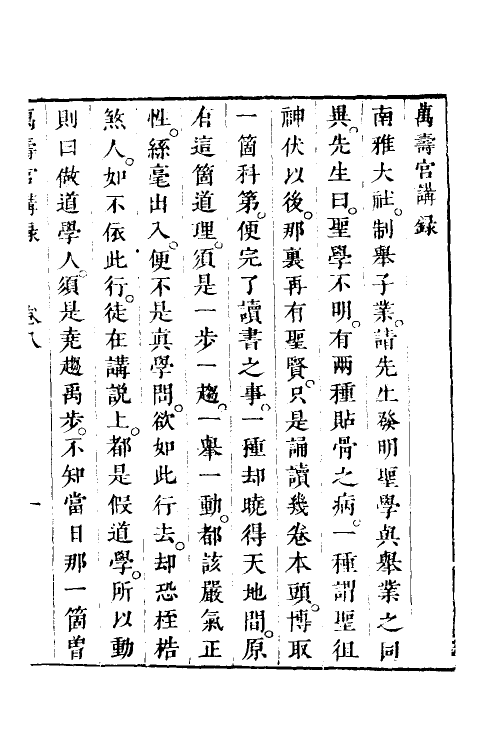 萬壽宮講錄
南雅大社制舉子業請先生發明聖學與舉業之同
異先生曰聖學不明有兩種貼骨之病一種謂聖徂
神伏以後那裏再有聖賢只是誦讀幾卷本頭博取
一箇科第便完了讀書之事一種却曉得天地間原
有這箇道理須是一步一趨一舉一動都該嚴氣正
性絲毫出入便不是眞學問欲如此行去却恐桎梏
煞人如不依此行徒在講說上都是假道學所以動
則曰做道學人須是堯趨禹步不知當日那一箇曾
萬壽宮講錄 卷八 一